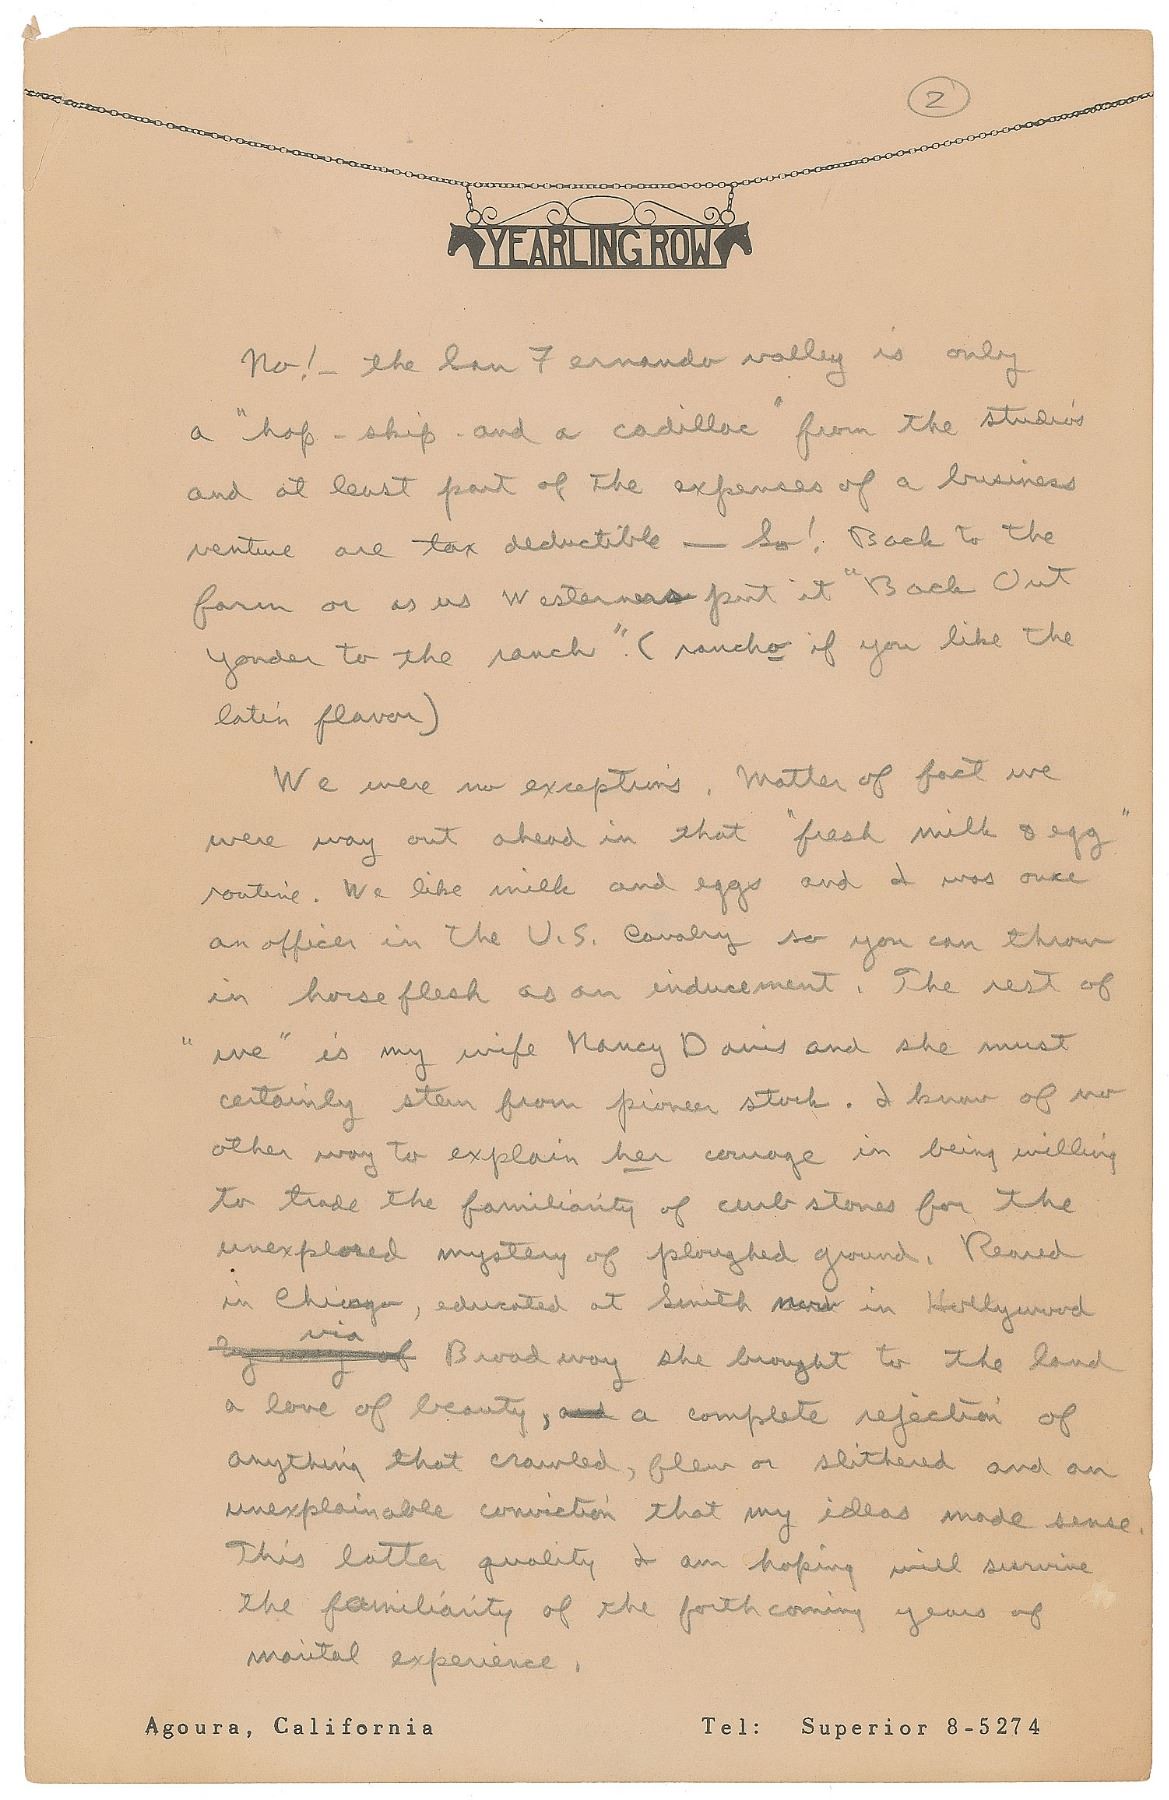 2
YEARLING ROW
No! – the San Fernando valley is only
a "hop - skip - and a cadillac" from the studios
and at least part of the expenses of a business
venture are tax deductible — So! Back to the
farm or as us Westerners put it "Back Out
yonder to the ranch". (rancho if you like the
latin flavor)
We were no exceptions. Matter of fact we
were way out ahead in that "fresh milk & egg"
routine. We like milk and eggs and I was once
an officer in the U.S. Cavalry so you can throw
in horse flesh as an inducement. The rest of
"we" is my wife Nancy Davis and she must
certainly stem from pioneer stock. I know of no
other way to explain her courage in being willing
to trade the familiarity of curb stones for the
unexplored mystery of ploughed ground. Reared
in Chicago, educated at Smith in Hollywood
via
by way of Broadway she brought to the land
a love of beauty, and a complete rejection of
anything that crawled, flew or slithered and an
unexplainable conviction that my ideas made sense.
This latter quality I am hoping will survive
the familiarity of the forthcoming years of
marital experience.
Agoura, California Tel: Superior 8-5274